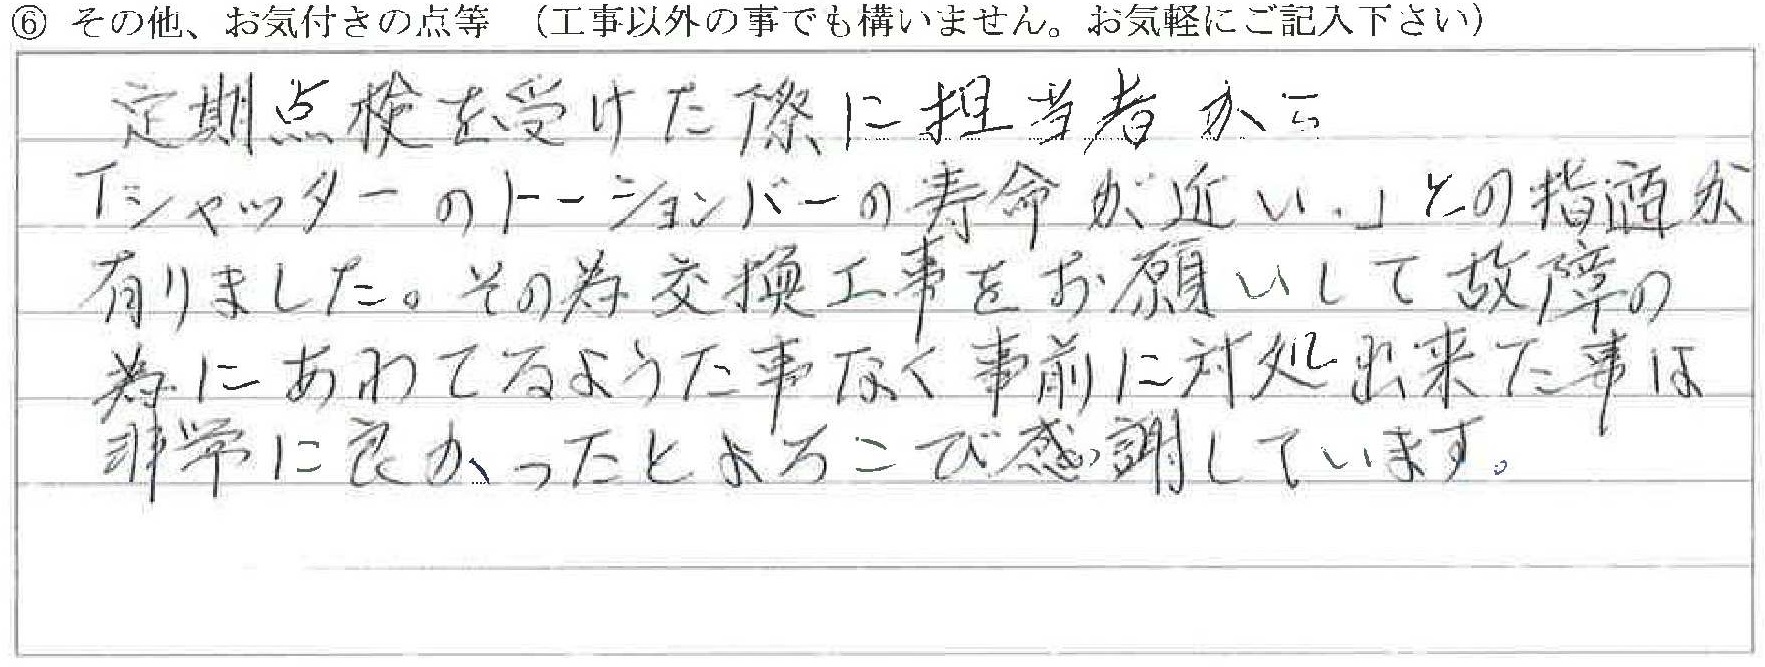 ⑥ その他、お気付きの点等 (工事以外の事でも構いません。お気軽にご記入下さい)
定期点検を受けた際に担当者から
「シャッターのトーションバーの寿命が近い.」との指適が
有りました。その為交換工事をお願いして故障の
為にあわてるような事なく事前に対処出来た事は
非常に良かったとよろこび感謝しています。